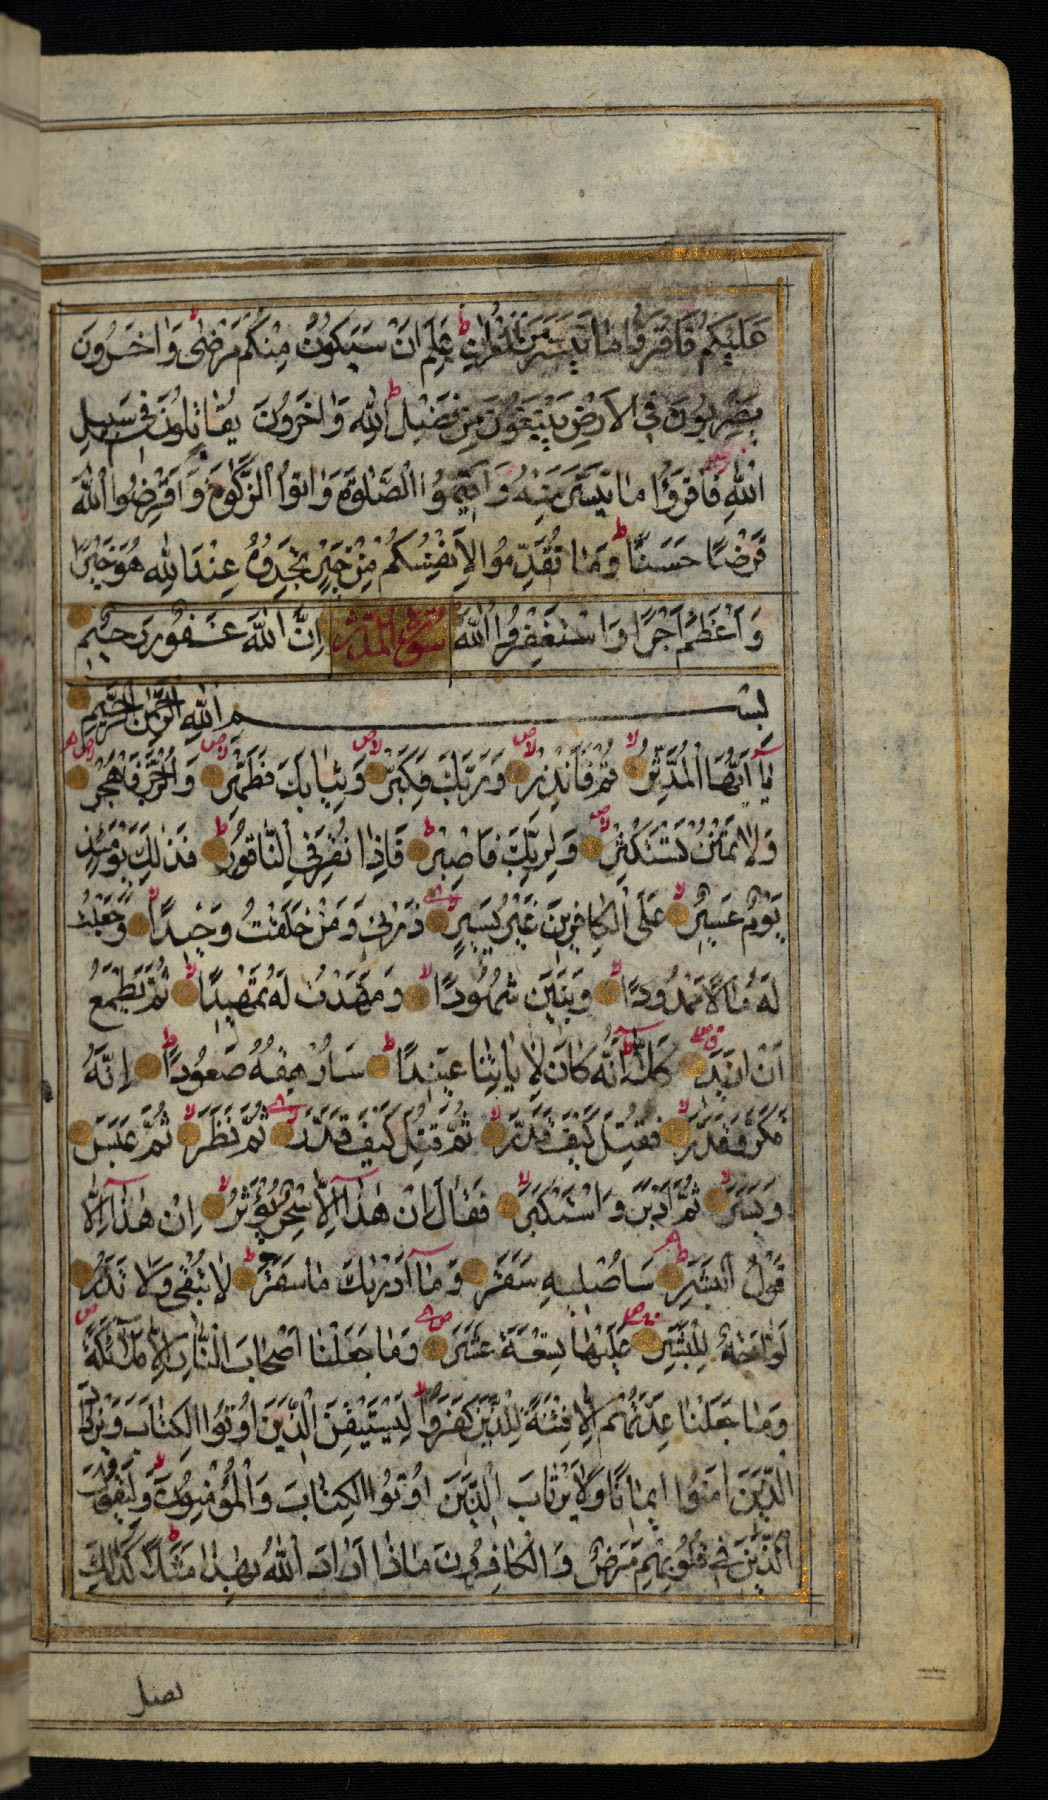 عَلَيْكُمْ فَاقْرَؤُا مَا تَيَسَّرَ مِنَ الْقُرْاٰنِ ط عَلِمَ اَنْ سَيَكُونُ مِنْكُمْ مَرْضٰى وَاٰخَرُونَ
يَضْرِبُونَ فِي الْاَرْضِ يَبْتَغُونَ مِنْ فَضْلِ اللّٰهِ وَاٰخَرُونَ يُقَاتِلُونَ فِي سَبِيلِ
اللّٰهِ فَاقْرَؤُا مَا تَيَسَّرَ مِنْهُ وَاَقِيمُوا الصَّلٰوةَ وَاٰتُوا الزَّكٰوةَ وَاَقْرِضُوا اللّٰهَ
قَرْضًا حَسَنًا ط وَمَا تُقَدِّمُوا لِاَنْفُسِكُمْ مِنْ خَيْرٍ تَجِدُوهُ عِنْدَ اللّٰهِ هُوَ خَيْرًا
وَاَعْظَمُ اَجْرًا وَاسْتَغْفِرُوا اللّٰهَ سورة المدثر اِنَّ اللّٰهَ غَفُورٌ رَحِيمٌ
بِسْمِ اللّٰهِ الرَّحْمٰنِ الرَّحِيمِ
يٰٓا اَيُّهَا الْمُدَّثِّرُ لا قُمْ فَاَنْذِرْ لاص وَرَبَّكَ فَكَبِّرْ لاص وَثِيَابَكَ فَطَهِّرْ لاص وَالرُّجْزَ فَاهْجُرْ لاص
وَلَا تَمْنُنْ تَسْتَكْثِرُ لاص وَلِرَبِّكَ فَاصْبِرْ ط فَاِذَا نُقِرَ فِي النَّاقُورِ فَذٰلِكَ يَوْمَئِذٍ
يَوْمٌ عَسِيرٌ لا عَلَى الْكَافِرِينَ غَيْرُ يَسِيرٍ ذَرْنِي وَمَنْ خَلَقْتُ وَحِيدًا لا وَجَعَلْتُ
لَهُ مَالًا مَمْدُودًا لا وَبَنِينَ شُهُودًا لا وَمَهَّدْتُ لَهُ تَمْهِيدًا لا ثُمَّ يَطْمَعُ
اَنْ اَزِيدَ كَلَّا اِنَّهُ كَانَ لِاٰيَاتِنَا عَنِيدًا ط سَاُرْهِقُهُ صَعُودًا ط اِنَّهُ
فَكَّرَ وَقَدَّرَ لا فَقُتِلَ كَيْفَ قَدَّرَ لا ثُمَّ قُتِلَ كَيْفَ قَدَّرَ ثُمَّ نَظَرَ لا ثُمَّ عَبَسَ
وَبَسَرَ لا ثُمَّ اَدْبَرَ وَاسْتَكْبَرَ لا فَقَالَ اِنْ هٰذَا اِلَّا سِحْرٌ يُؤْثَرُ لا اِنْ هٰذَا اِلَّا
قَوْلُ الْبَشَرِ ط سَاُصْلِيهِ سَقَرَ وَمَا اَدْرٰيكَ مَا سَقَرُ ط لَا تُبْقِي وَلَا تَذَرُ
لَوَّاحَةٌ لِلْبَشَرِ عَلَيْهَا تِسْعَةَ عَشَرَ وَمَا جَعَلْنَا اَصْحَابَ النَّارِ اِلَّا مَلٰئِكَةً ص
وَمَا جَعَلْنَا عِدَّتَهُمْ اِلَّا فِتْنَةً لِلَّذِينَ كَفَرُوا لا لِيَسْتَيْقِنَ الَّذِينَ اُوتُوا الْكِتَابَ وَيَزْدَادَ
الَّذِينَ اٰمَنُوا اِيمَانًا وَلَا يَرْتَابَ الَّذِينَ اُوتُوا الْكِتَابَ وَالْمُؤْمِنُونَ لا وَلِيَقُولَ
الَّذِينَ فِي قُلُوبِهِمْ مَرَضٌ وَالْكَافِرُونَ مَاذَا اَرَادَ اللّٰهُ بِهٰذَا مَثَلًا ط كَذٰلِكَ
يضل